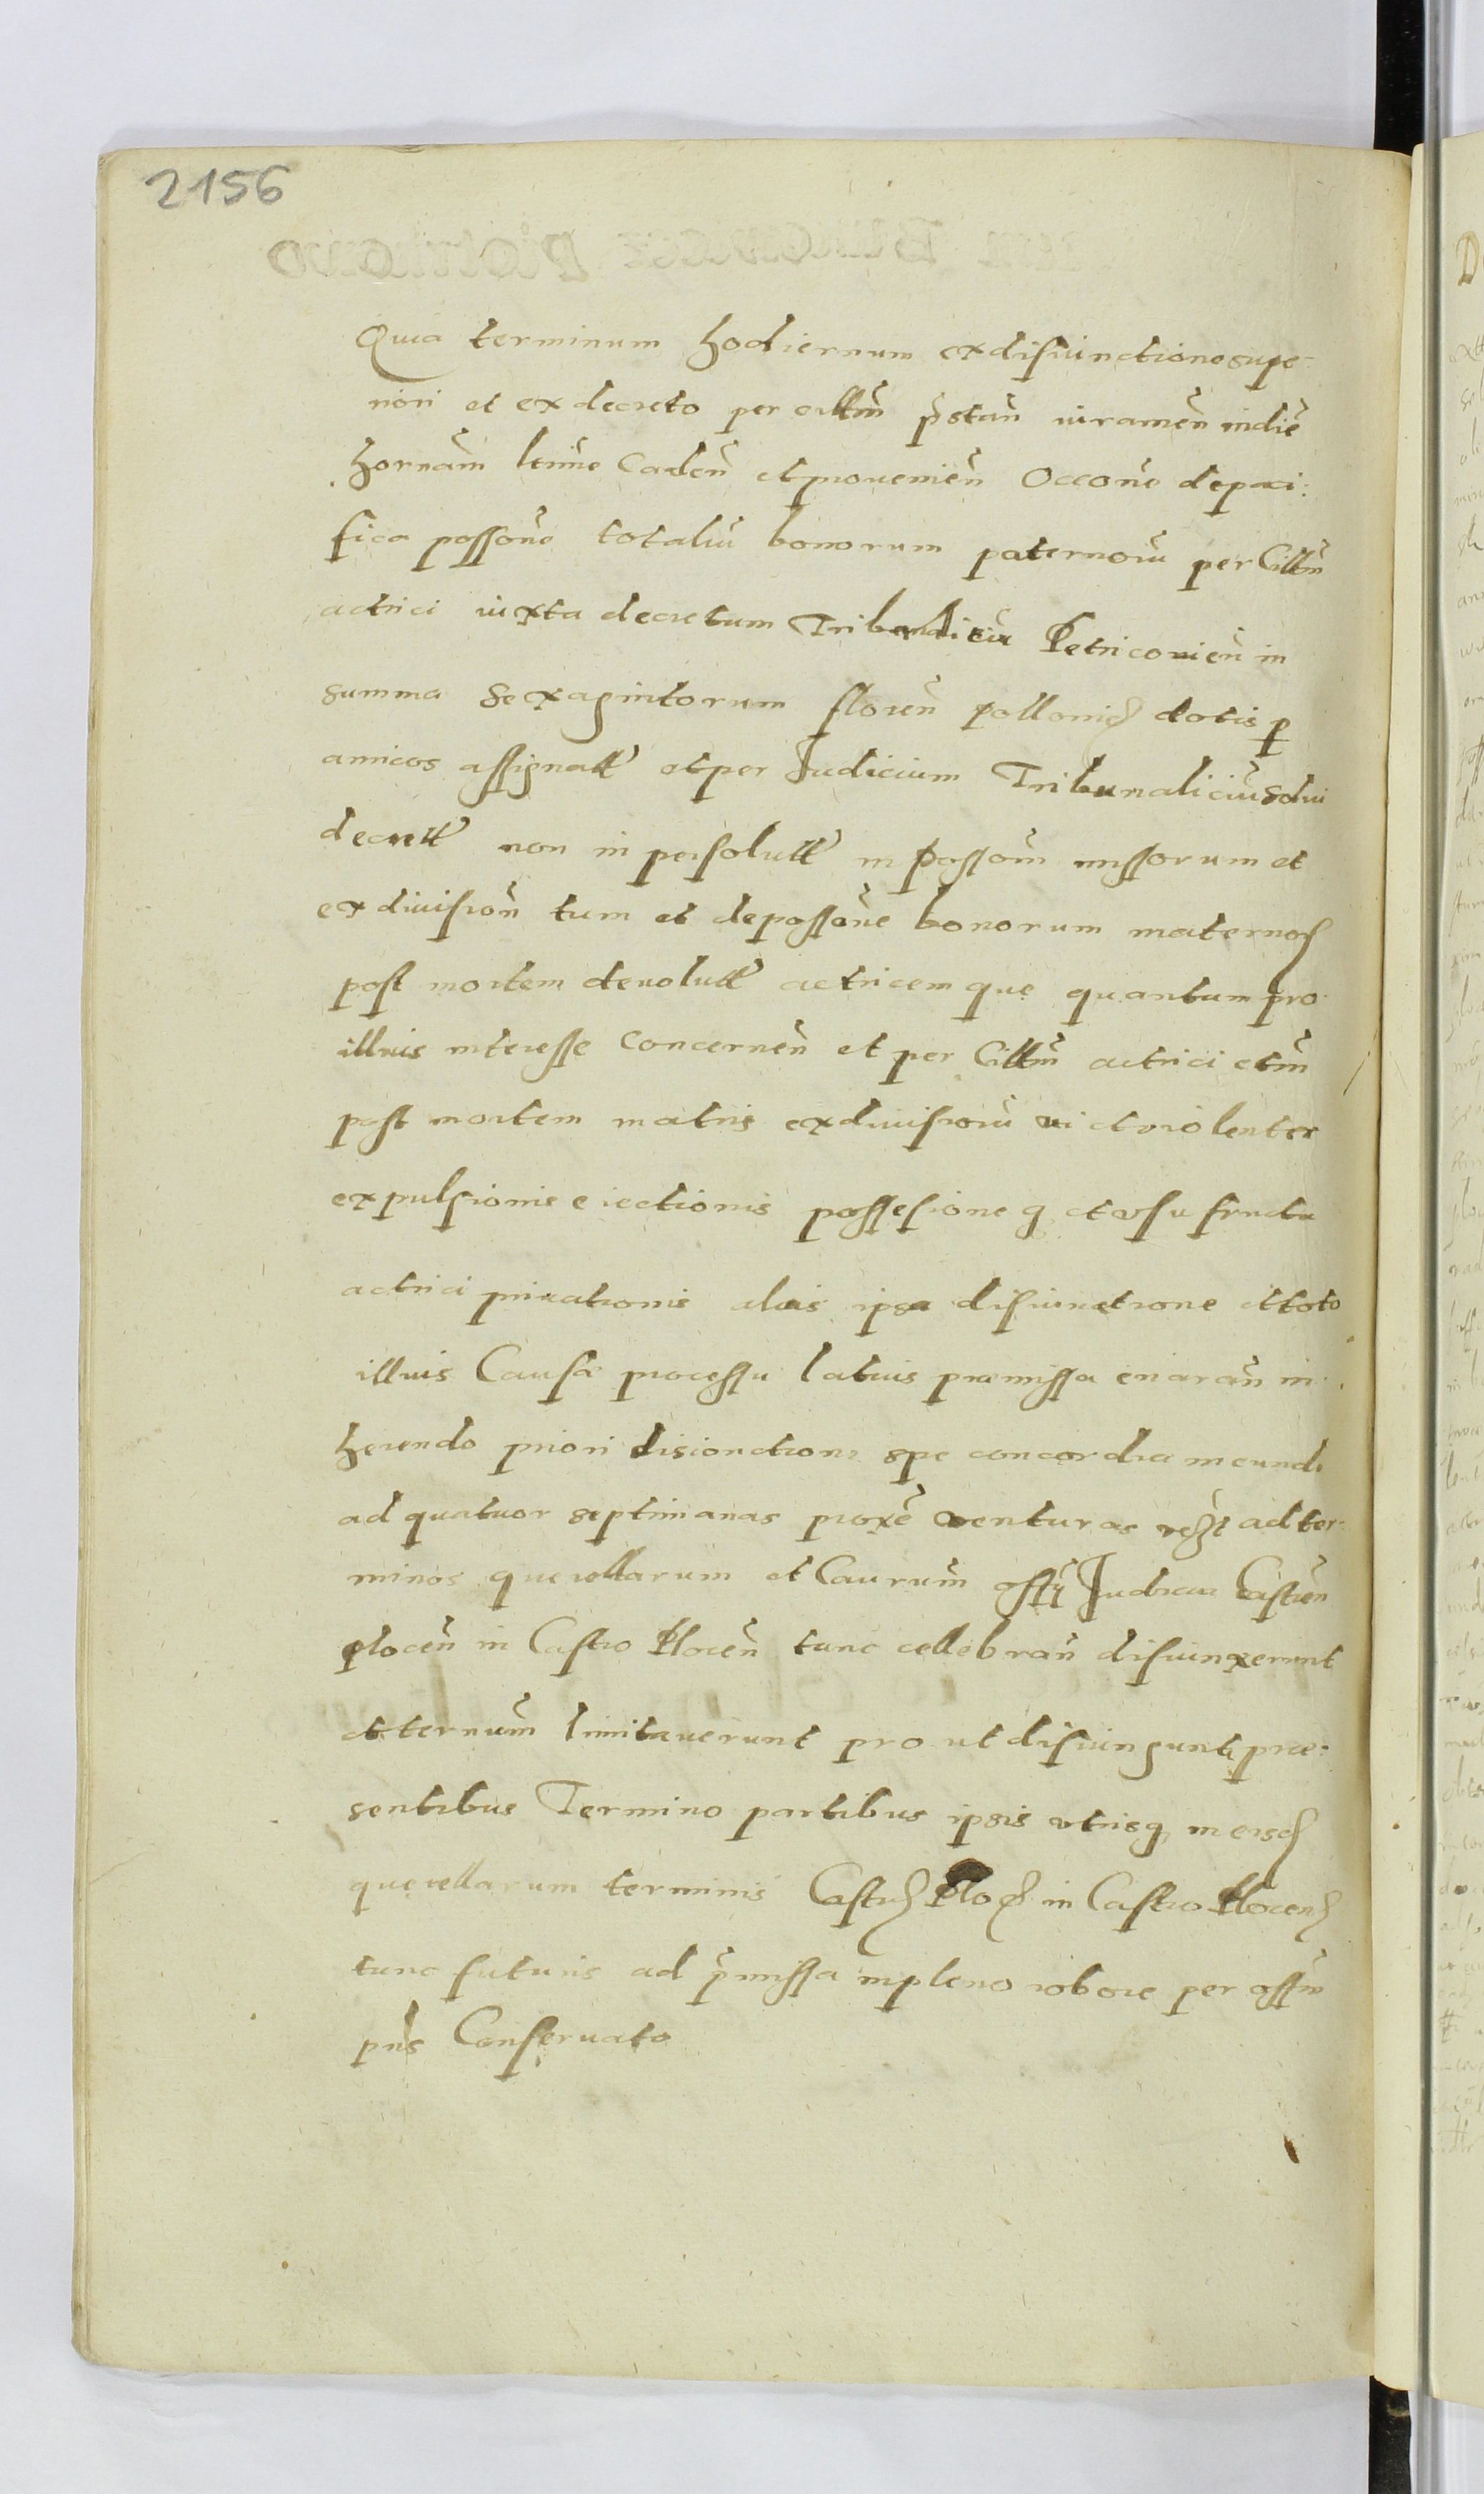 2156
Quia terminum hodiernum ex disiunctione supe-
riori et ex decreto per cittm̃ p̃stañ iurameñ indiẽ
hornam̃ lenine Cadeñ et prouenieñ Occone depaci:
fica possone totaliũ bonorum paternoru per Cittm̃
actrici iuxta decretum Tribunalitiu Petriconieñ in
summa sexagintorum floreñ pollonich dotis p
amicos assignatt et per Judicium Tribunaliciũ solui
decrett non in persolutt in Possom̃ missorum et
ex diuisioñ tum et de possone bonorum maternor
post mortem deuolutt actricem que quantum pro
illius interesse Concerneñ et per Cittm̃ actrici etm̃
post mortem matris ex diuisioru vi et violenter
expulsionis eiectionis possesione q et vsu fructu
actrici priuationis alias ipsa disiunctione et toto
illius Causæ processu latius præmissa enarañ in
herendo priori disionctioni spe concordia ineundi
ad quatuor septimanas proxẽ venturas ad ter-
minos querellarum et Caurum̃ offy Judicii Castreñ
ploceñ in Castro Ploceñ tunc cellebrañ disiunxerunt
et ternum̃ limitauerunt pro ut disiungunt præ-
sentibus Termino partibus ipsis vtrisq in eisd
querellarum terminis Castr Ploc in Castro Plocen
tunc futuris ad p̃missa in pleno robore per offm̃
pñs Conseruato